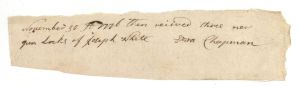 November 30th 1776 then received three new
gun Locks of Joseph White Ezra Chapman